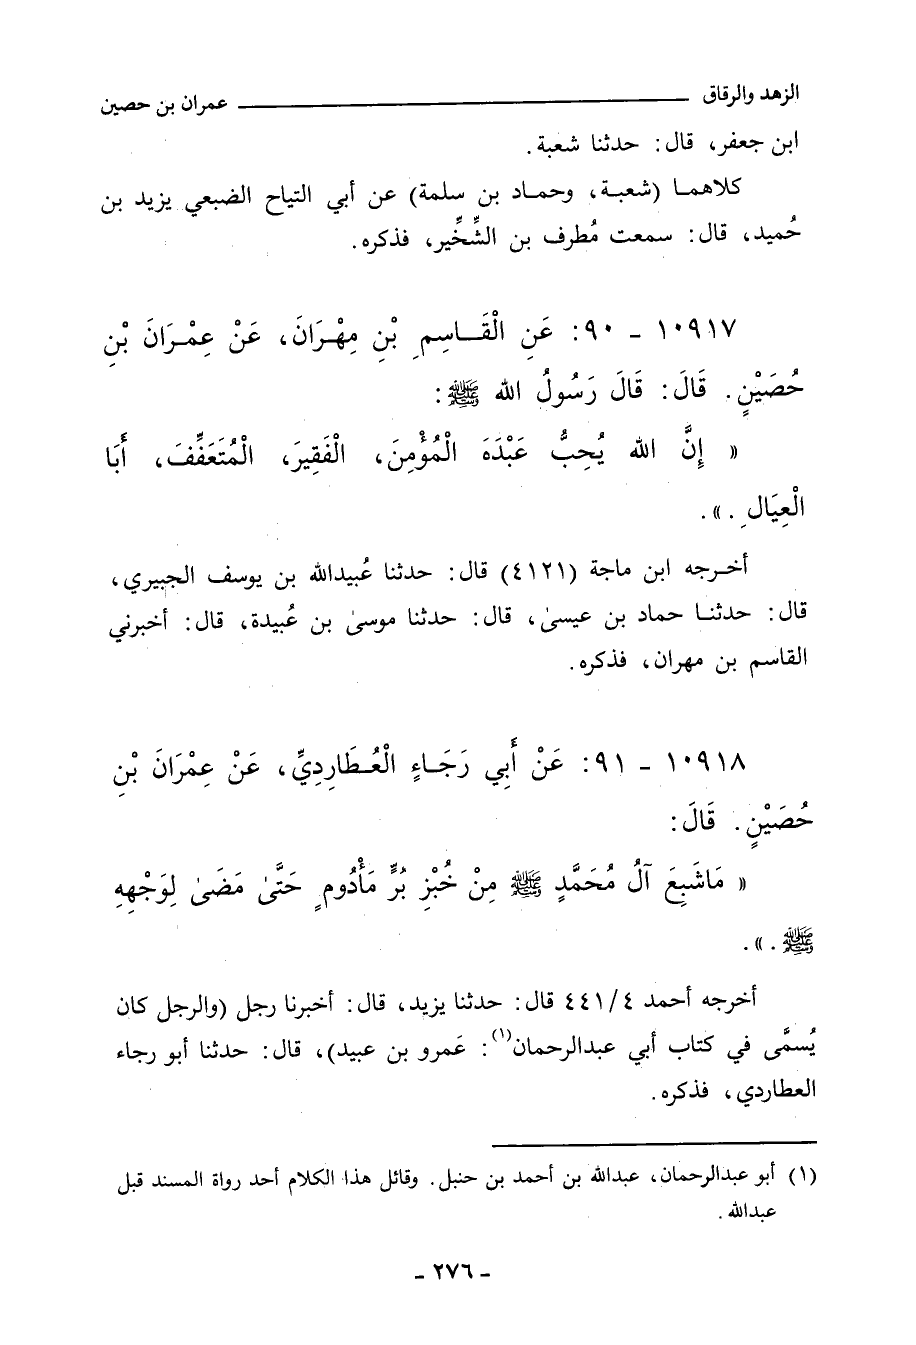 الزهد والرقاق ــــــــــــــــــــــــــــ عمران بن حصين
ابن جعفر، قال: حدثنا شعبة.
كلاهما (شعبة، وحماد بن سلمة) عن أبي التياح الضبعي يزيد بن
حُميد، قال: سمعت مُطرف بن الشِّخِّير، فذكره.
١٠٩١٧ - ٩٠: عَنِ الْقَاسِمِ بْنِ مِهْرَانَ، عَنْ عِمْرَانَ بْنِ
حُصَيْنٍ. قَالَ: قَالَ رَسُولُ الله ﷺ:
« إِنَّ الله يُحِبُّ عَبْدَهُ الْمُؤْمِنَ، الْفَقِيرَ، الْمُتَعَفِّفَ، أَبَا
الْعِيَالِ.».
أخرجه ابن ماجة (٤١٢١) قال: حدثنا عُبيدالله بن يوسف الجبيري،
قال: حدثنا حماد بن عيسىٰ، قال: حدثنا موسىٰ بن عُبيدة، قال: أخبرني
القاسم بن مهران، فذكره.
١٠٩١٨ - ٩١: عَنْ أَبِي رَجَاءٍ الْعُطَارِدِيِّ، عَنْ عِمْرَانَ بْنِ
حُصَيْنٍ. قَالَ:
« مَاشَبِعَ آلُ مُحَمَّدٍ ﷺ مِنْ خُبْزِ بُرٍّ مَأْدُومٍ حَتَّىٰ مَضَىٰ لِوَجْهِهِ
ﷺ.».
أخرجه أحمد ٤/٤٤١ قال: حدثنا يزيد، قال: أخبرنا رجل (والرجل كان
يُسمَّى في كتاب أبي عبدالرحمان(١): عَمرو بن عبيد)، قال: حدثنا أبو رجاء
العطاردي، فذكره.
(١) أبو عبدالرحمان، عبدالله بن أحمد بن حنبل. وقائل هذا الكلام أحد رواة المسند قبل
عبدالله.
- ٢٧٦ -